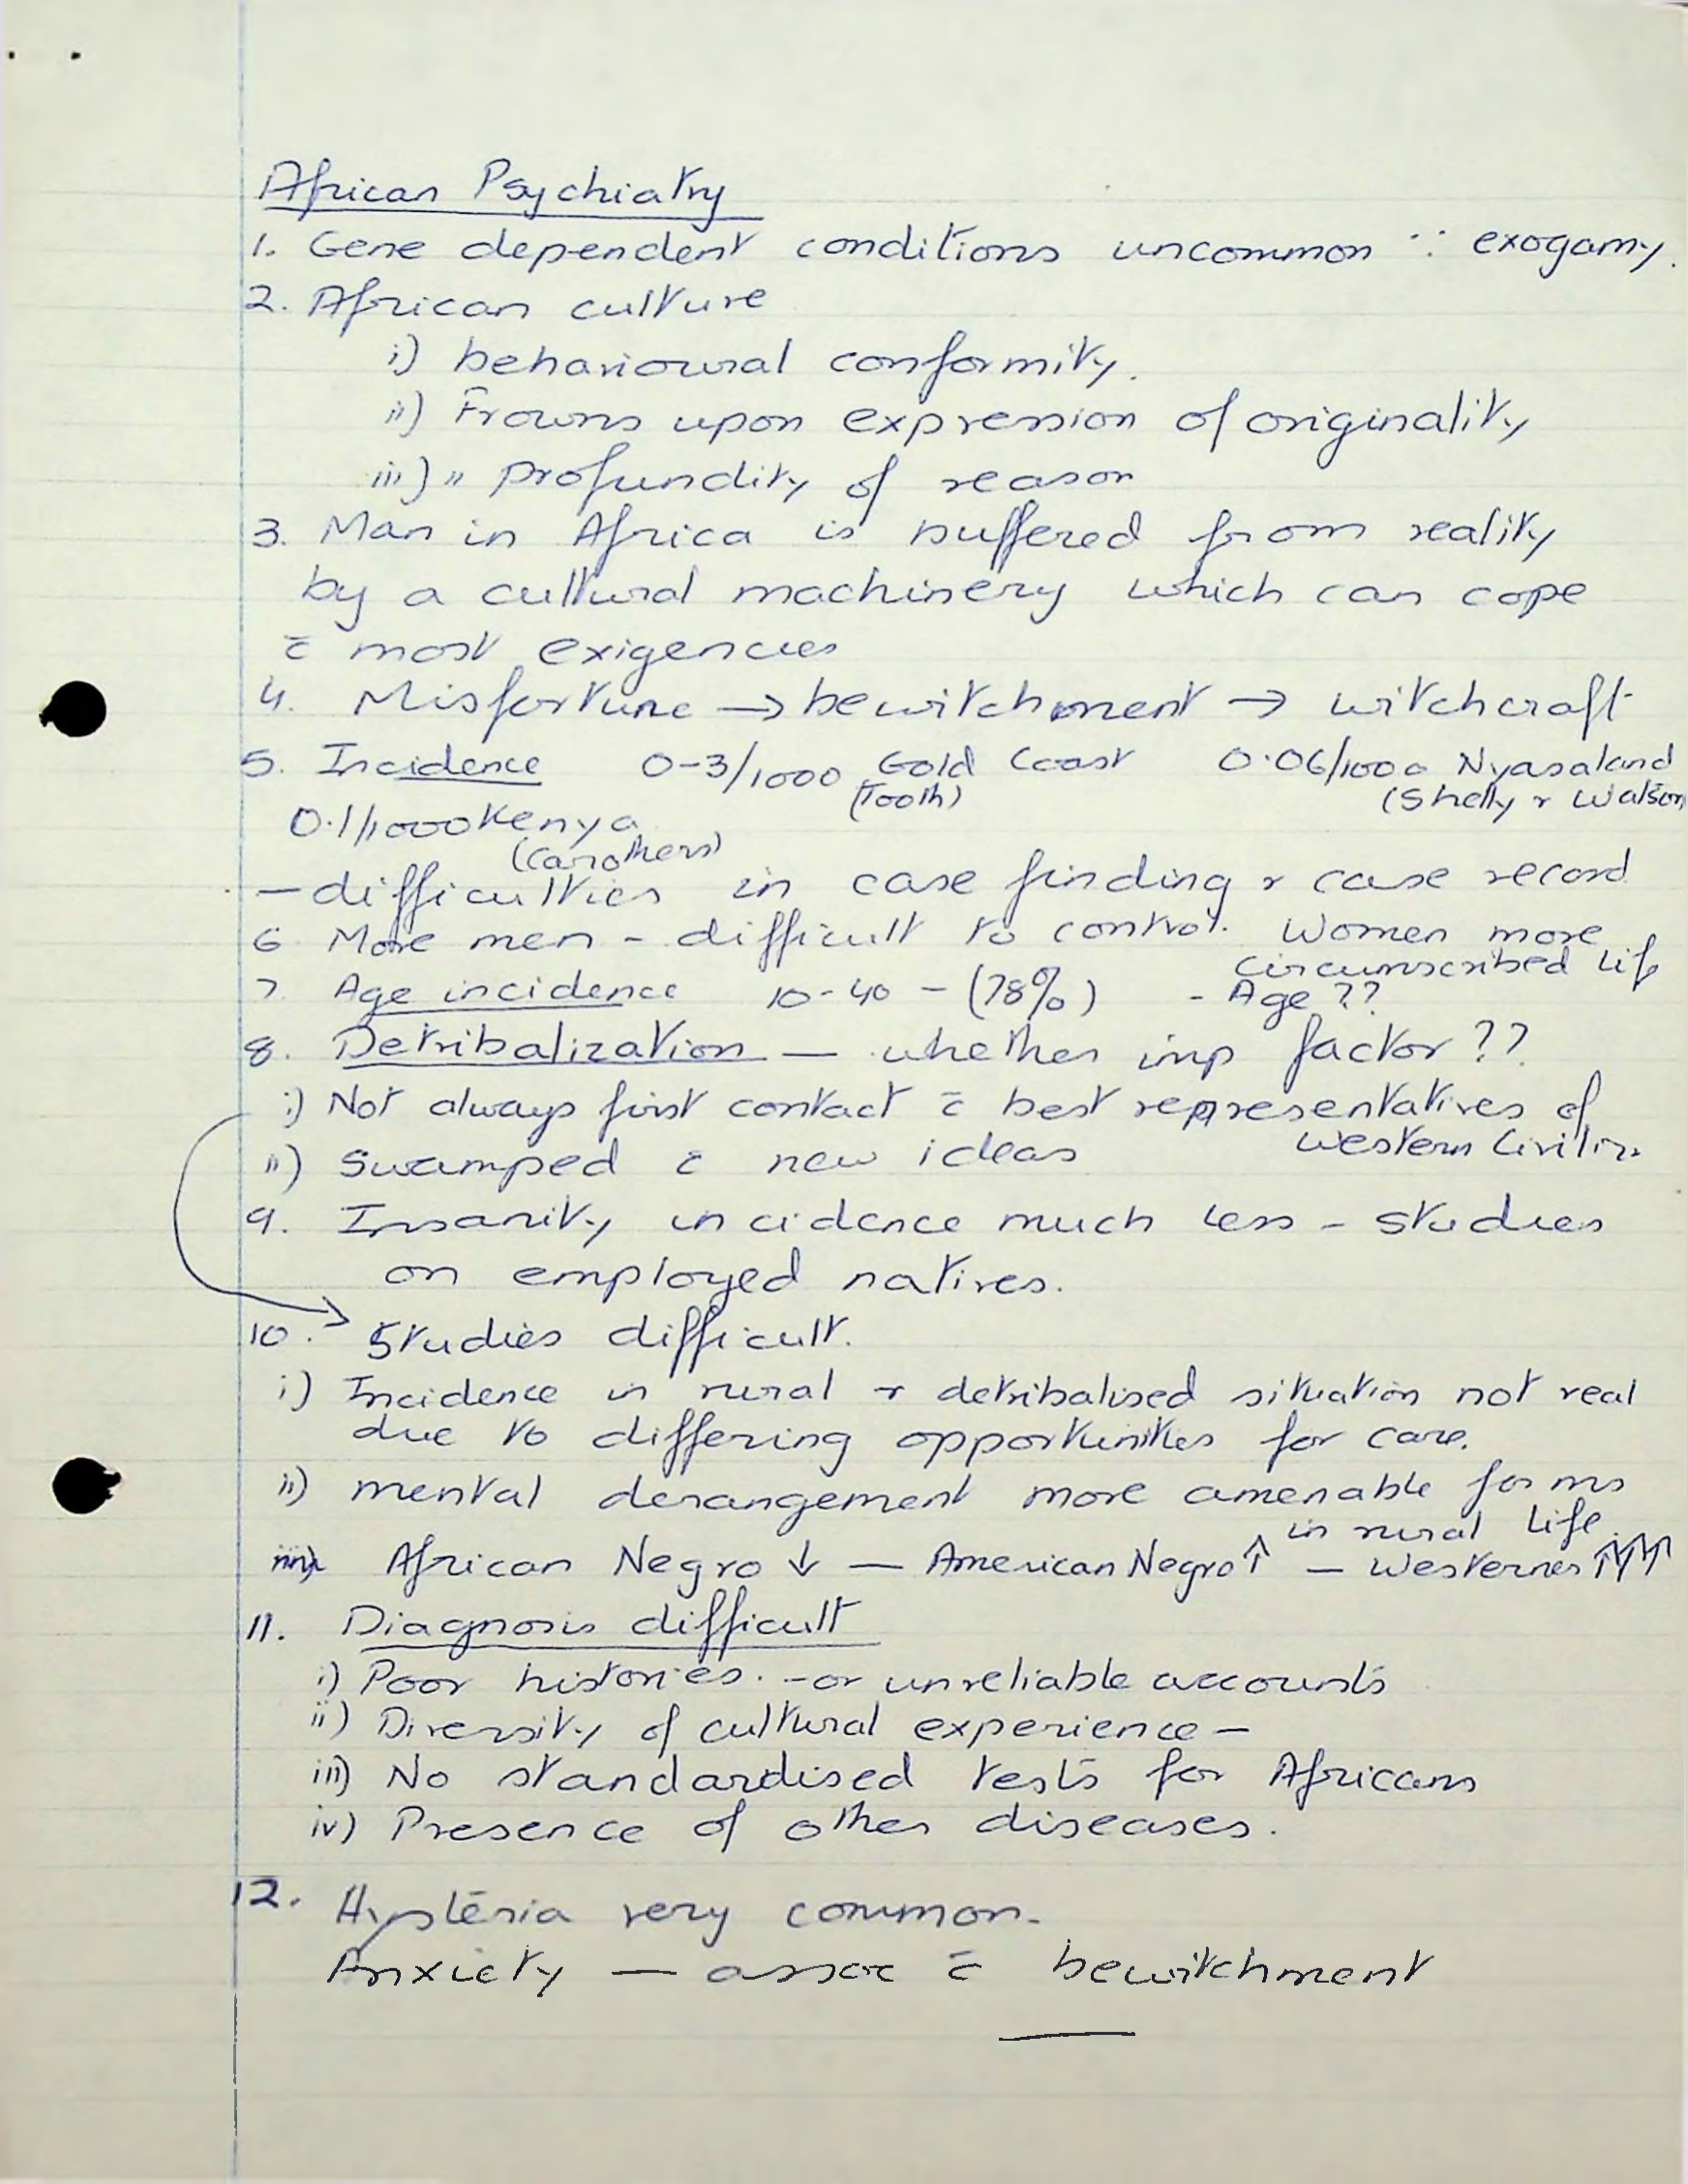 African Psychiatry
1. Gene dependent conditions uncommon ∵ exogamy.
2. African culture
i) behavioural conformity.
ii) Frowns upon expression of originality
iii) " profundity of reason
3. Man in Africa is buffered from reality
by a cultural machinery which can cope
c̄ most exigencies
4. Misfortune → bewitchment → witchcraft
5. Incidence 0-3/1000 Gold Coast 0.06/1000 Nyasaland
(Tooth) (Shelly & Watson
0.1/1000 Kenya
(Carothers)
— difficulties in case finding & case record
6. More men - difficult to control. Women more
circumscribed life
7. Age incidence 10-40 - (78%) - Age ??
8. Detribalization — whether imp factor ??
i) Not always first contact c̄ best representatives of
Western Civilizn
ii) Swamped c̄ new ideas
9. Insanity incidence much less - studies
on employed natives.
10. Studies difficult.
i) Incidence in rural & detribalised situation not real
due to differing opportunities for care.
ii) mental derangement more amenable forms
in rural life.
iii) African Negro ↓ — American Negro ↑ — Westerners ↑↑↑
11. Diagnosis difficult
i) Poor histories. - or unreliable accounts
ii) Diversity of cultural experience —
iii) No standardised tests for Africans
iv) Presence of other diseases.
12. Hysteria very common.
Anxiety — assoc c̄ bewitchment